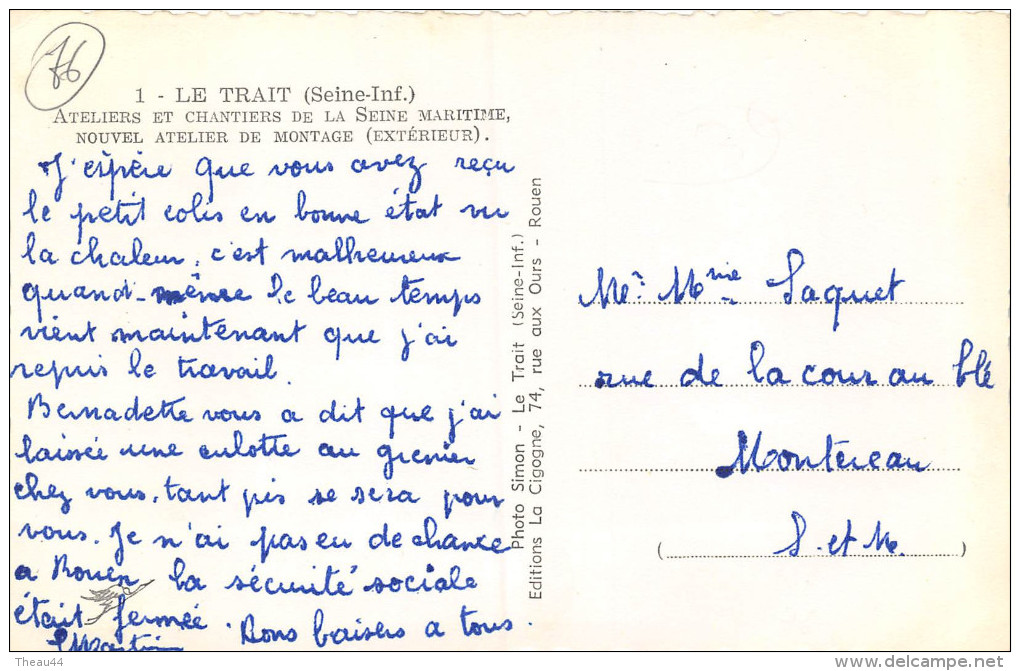 76
1 - LE TRAIT (Seine-Inf.)
ATELIERS ET CHANTIERS DE LA SEINE MARITIME,
NOUVEL ATELIER DE MONTAGE (EXTÉRIEUR).
J'espère que vous avez reçu
le petit colis en bonne état vu
la chaleur, c'est malheureux
quand-même le beau temps
vient maintenant que j'ai
repris le travail.
Bernadette vous a dit que j'ai
laissée une culotte au grenier
chez vous, tant pis se sera pour
vous. Je n'ai pas eu de chance
a Rouen la sécurité sociale
était fermée. Bons baisers a tous.
Photo Simon - Le Trait (Seine-Inf.)
Editions La Cigogne, 74, rue aux Ours - Rouen
Mr. Mme Saquet
rue de la cour au blé
Montereau
(S. et M.)
Theau44
www.delcampe.net